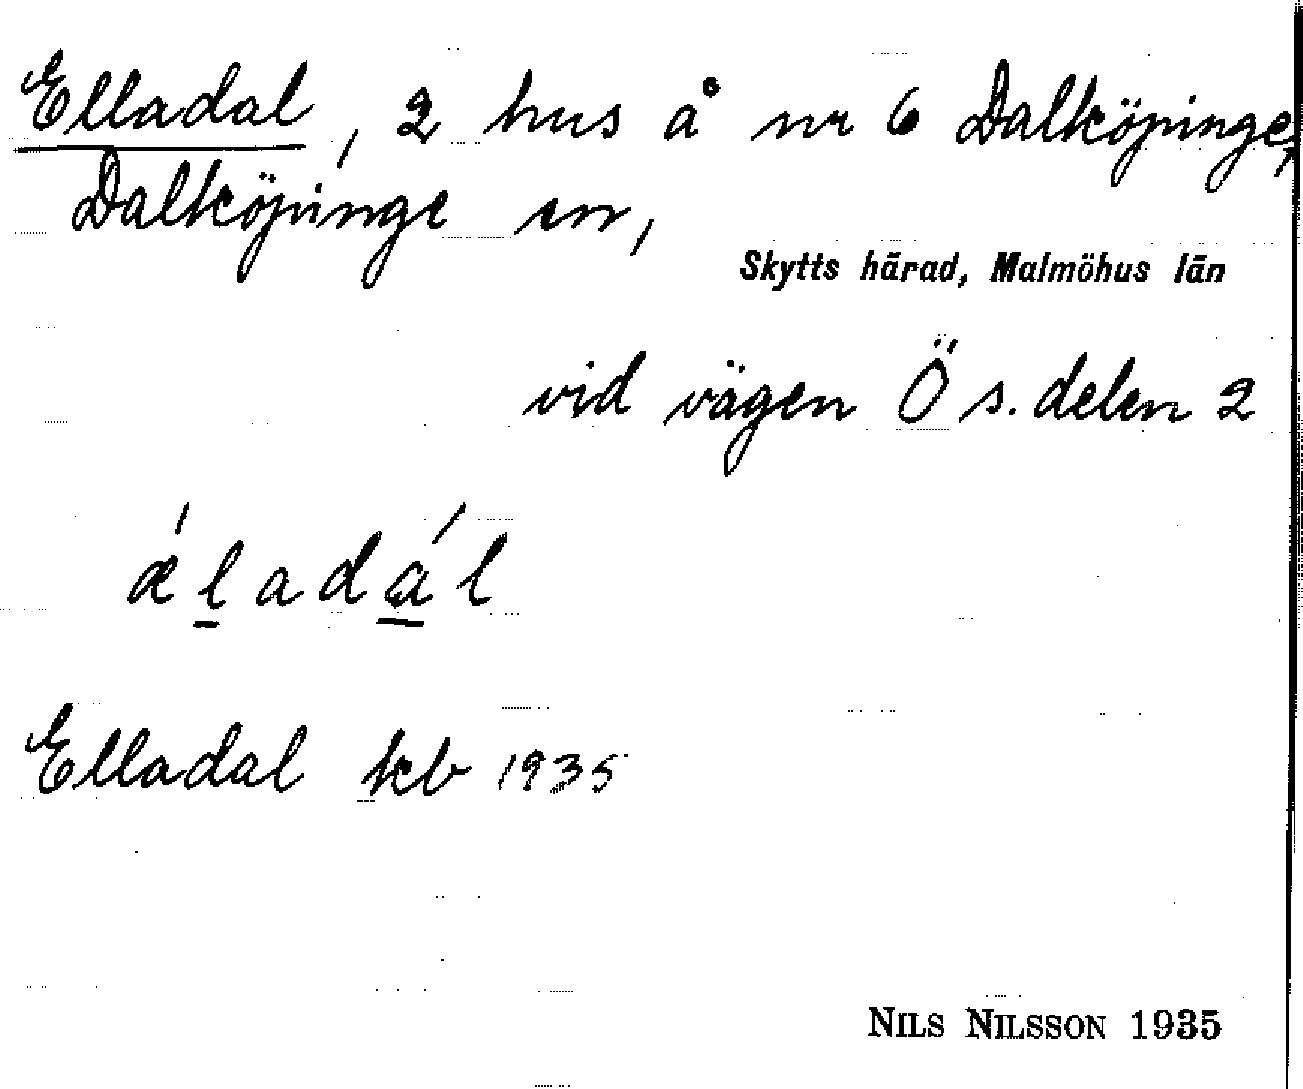 Elladal, 2 hus å nr 6 Dalköpinge,
Dalköpinge sn,
Skytts härad, Malmöhus län
vid vägen Ö s. delen 2
ǽl̲adá̲l
Elladal kb 1935
NILS NILSSON 1935